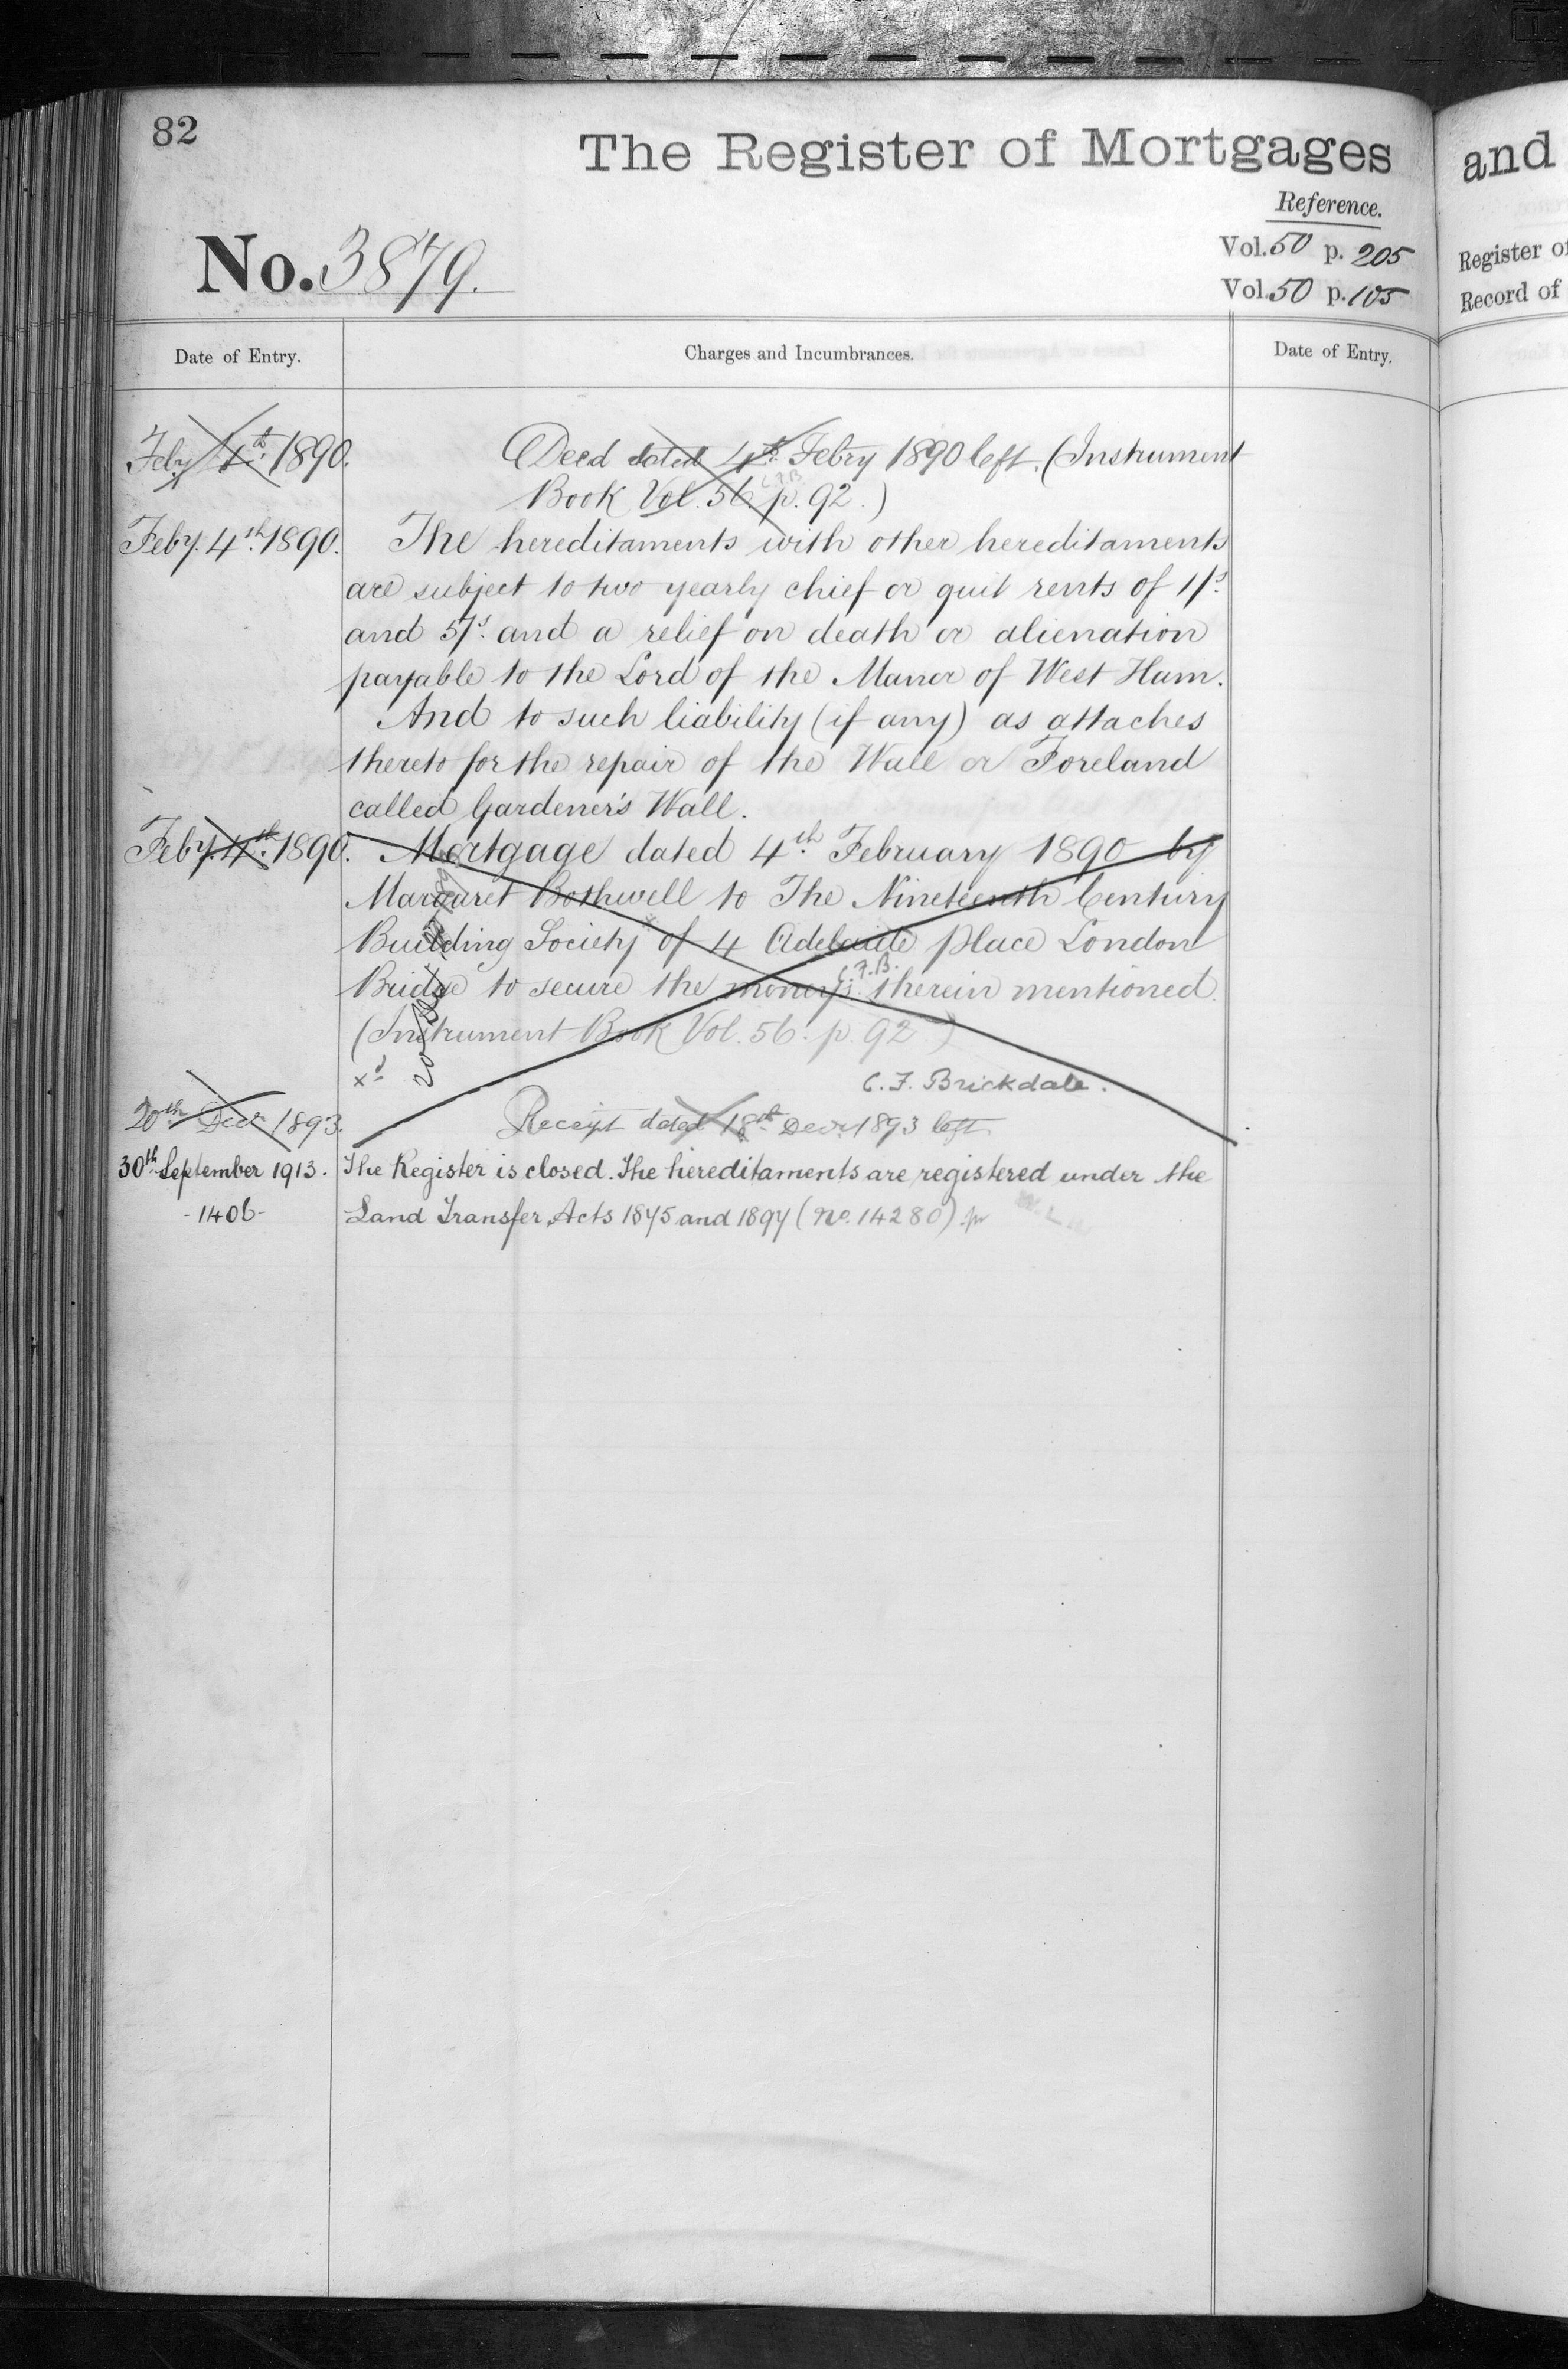 82
The Register of Mortgages
and
Reference.
No. 3879.
Vol. 50 p. 205
Vol. 50 p. 105
Register of
Record of
Date of Entry.
Charges and Incumbrances.
Date of Entry.
Feby 4th 1890. Deed dated 4th Febry 1890 left. (Instrument
Book Vol. 56. p. 92.)
C.F.B.
Feby. 4th 1890. The hereditaments with other hereditaments
are subject to two yearly chief or quit rents of 1/s.
and 5/s. and a relief on death or alienation
payable to the Lord of the Manor of West Ham.
And to such liability (if any) as attaches
thereto for the repair of the Wall or Foreland
called Gardener's Wall.
Feby. 4th 1890. Mortgage dated 4th February 1890 by
Margaret Bothwell to The Nineteenth Century
Building Society of 4 Adelaide Place London
Bridge to secure the moneys therein mentioned.
C.F.B.
(Instrument Book Vol. 56. p. 92.)
xd
C. F. Brickdale.
20th Decr 1893. Receipt dated 18th Decr 1893 left.
30th September 1913. The Register is closed. The hereditaments are registered under the
-1406- Land Transfer Acts 1875 and 1897 (No. 14280).